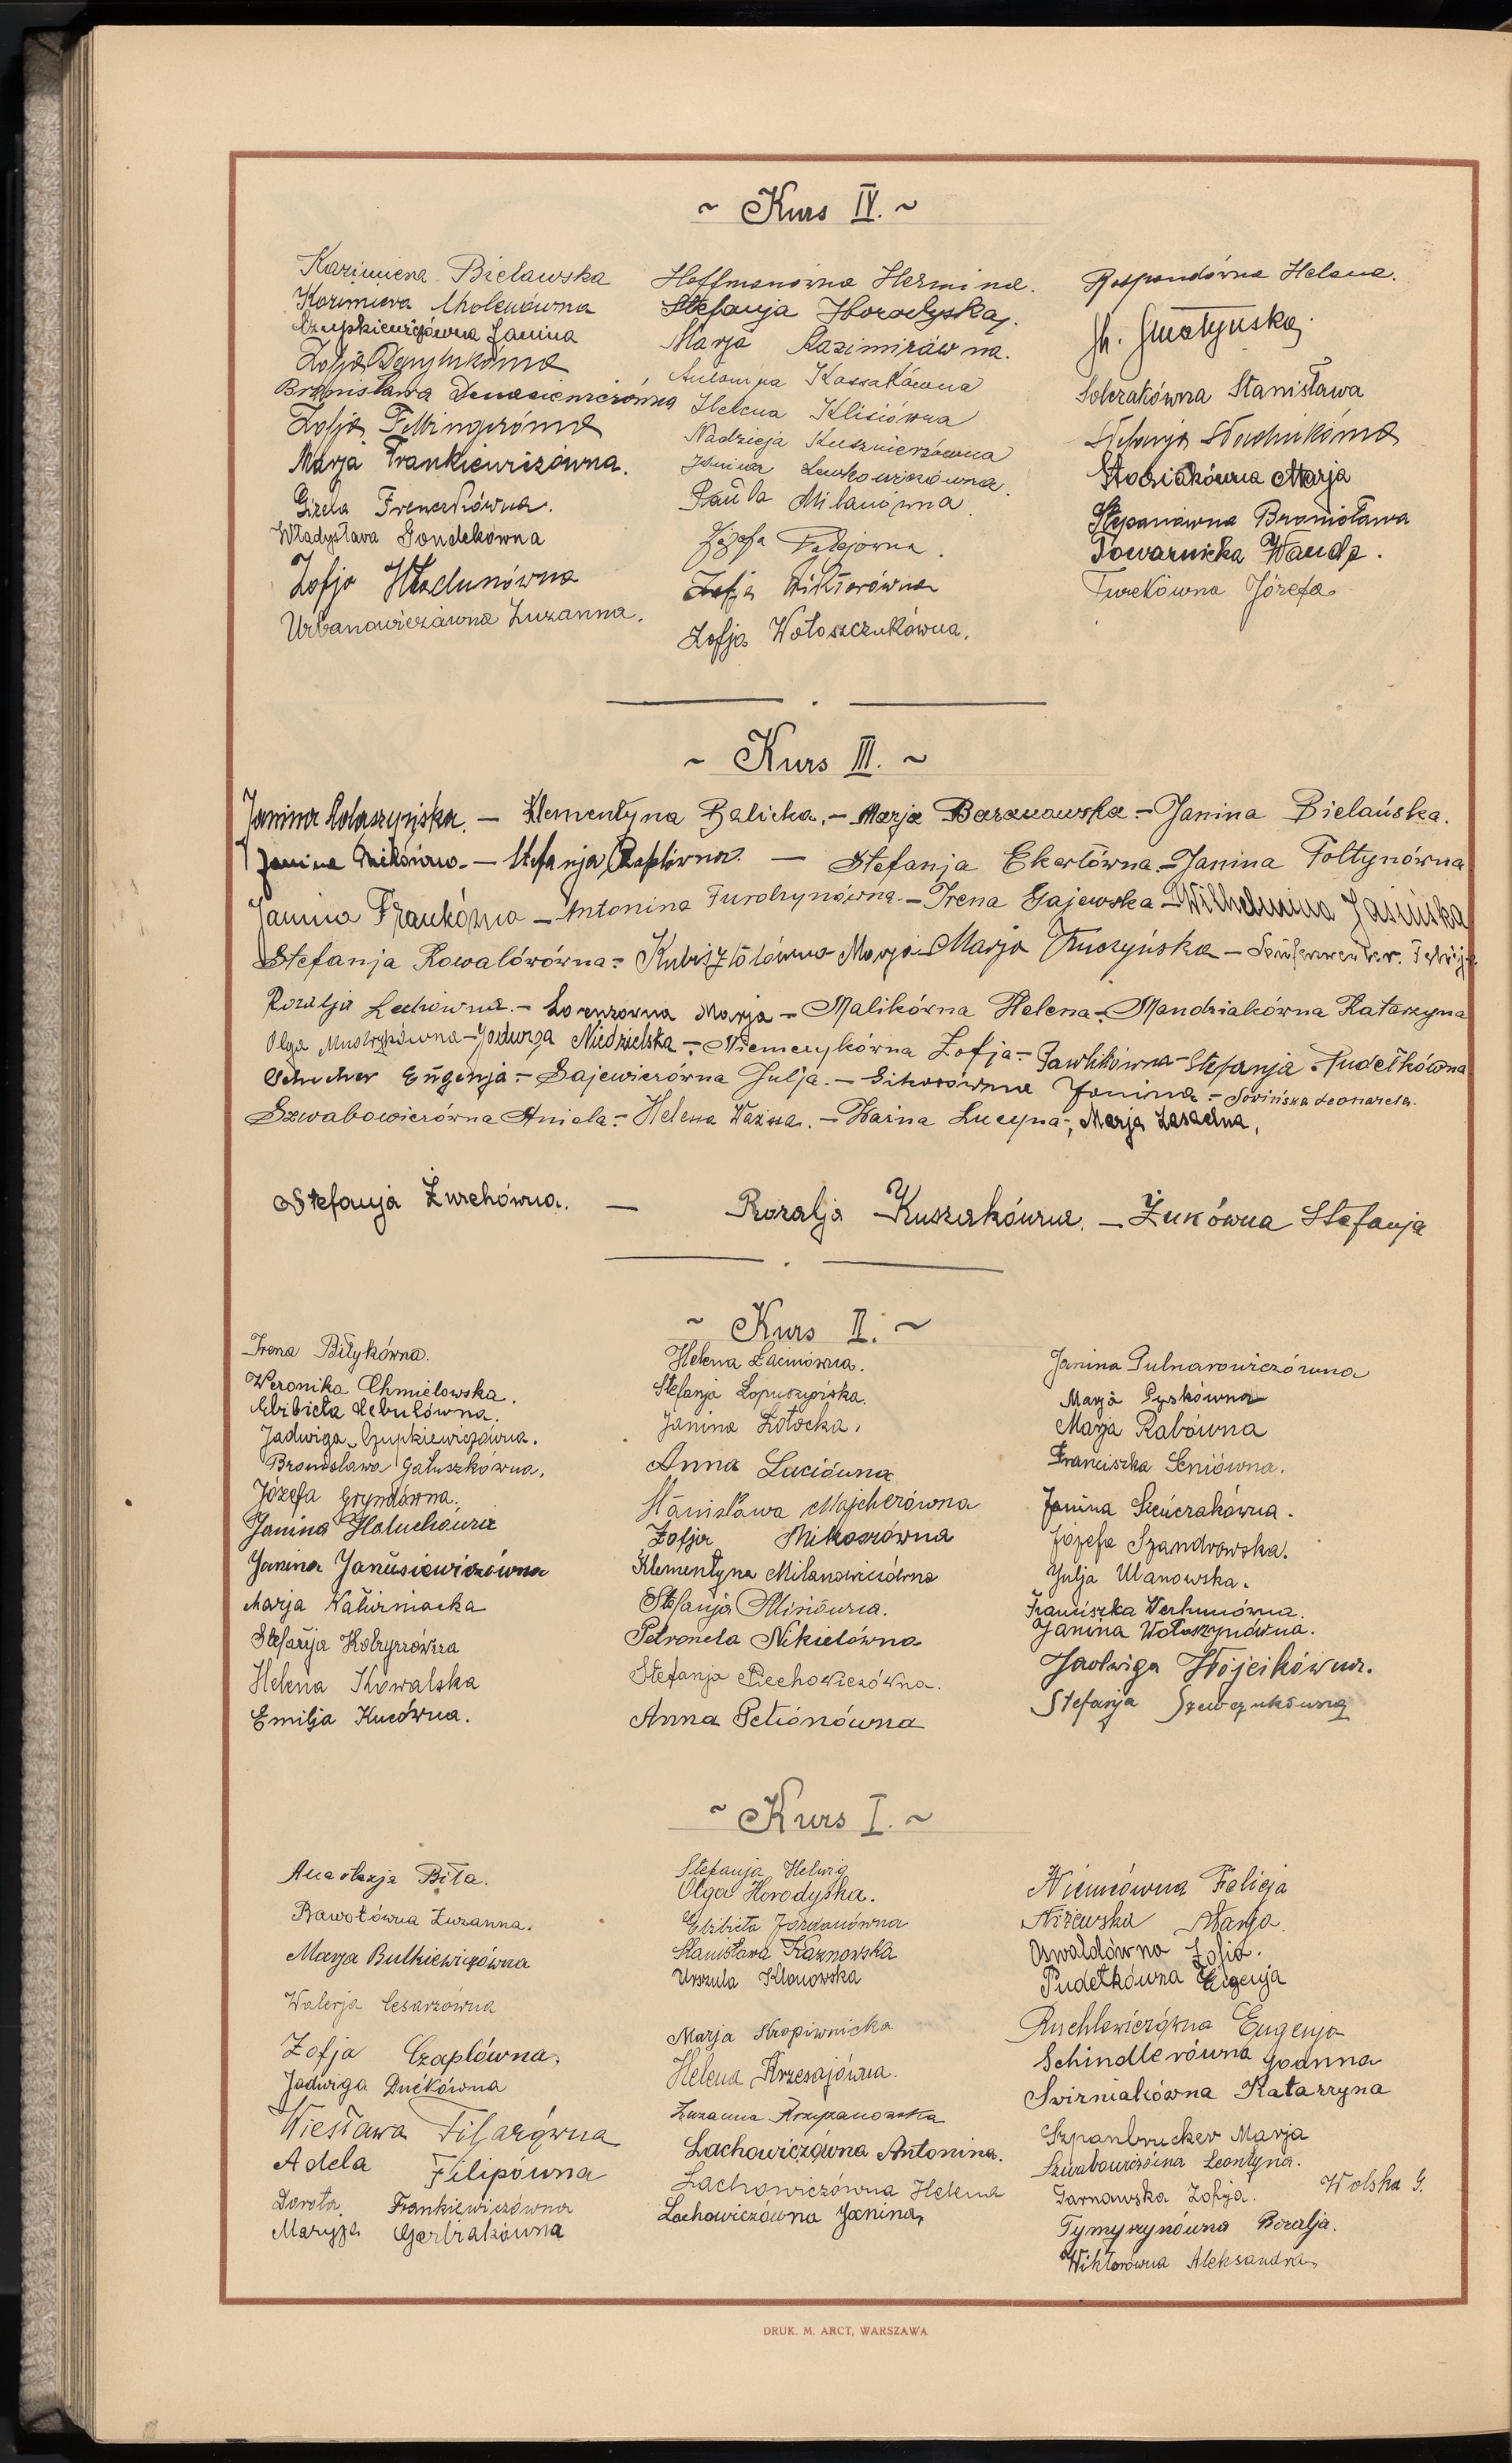 ~ Kurs IV. ~
Kazimiera Bielawska
Kazimiera Cholewówna
Czupkiewiczówna Janina
Zofja
Bronisława
Zofja Fettingerówna
Marja Frankiewiczówna.
Gizela Frenczkówna.
Władysława Gondekówna
Zofja
Urbanowiczówna Zuzanna.
Hoffmanówna Hermina.
Stefanja Horodyska.
Marja Kazimirówna.
Antonina Kossakówna
Helena Klisiówna
Nadzieja Kusznierzówna
Janina Lewkowiczówna.
Paula Milanówna
Józefa
Zofja Wiktorówna
Zofja Wołoszczukówna.
Respondówna Helena.
Smotyńska
Sobczakówna Stanisława
Stefanja Stadnikówna
Stociakówna Marja
Stepanówna Bronisława
Towarnicka Wanda.
Turekówna Józefa
~ Kurs III. ~
Janina Adaszyńska. – Klementyna Balicka. – Marja Baranowska – Janina Bielańska.
Janina – Stefanja – Stefanja Ekertówna. – Janina Foltynówna
Janina Frankówna – Antonina Furdzynówna. – Irena Gajewska – Wilhelmina Jasińska
Stefanja Kowalówówna – Marja – Marja Kuczyńska –
Rozalja Lechówna. – Lorenzówna Marja – Malikówna Helena – Mandziakówna Katarzyna
Olga Mudrykówna – Jadwiga Niedzielska – Niemczykówna Zofja – Pawlikówna – Stefanja Pudełkówna
Schicher Eugenja – Sajewiczówna Julja. – Sikorówna Janina – Sowińska Leonarda.
Szwabowiczówna Aniela – Helena Ważna. – Ważna Lucyna –, Marja Zasadna,
Stefanja Żurchówna. – Rozalja Kuszakówna. – Żukówna Stefanja
~ Kurs II. ~
Irena Biłykówna.
Weronika Chmielowska.
Elżbieta Cebulówna.
Jadwiga Czupkiewiczówna.
Bronisława Gałuszkówna.
Józefa Gryndówna.
Janina
Janina Janusiewiczówna
Marja Kaliniacka
Stefanja
Helena Kowalska
Emilja Kucówna.
Helena Łaciniówna.
Stefanja Łopuszyńska.
Janina Łotocka.
Anna Luciówna
Stanisława Majcherówna
Zofja Mikoszówna
Klementyna Milanowiczówna
Stefanja Misiówna.
Petronela Nikielówna
Stefanja Piechowiczówna.
Anna Petionówna
Janina Pulnarowiczówna
Marja Pyskówna
Marja Rabówna
Franciszka Seniówna.
Janina Sieńczakówna.
Józefa Szandrowska.
Julja Ulanowska.
Franciszka Werhunówna.
Janina Wołoszynówna.
Jadwiga Wójcikówna.
Stefanja Szewczukówna
~ Kurs I. ~
Anastazja Biła.
Bawołówna Zuzanna.
Marja Butkiewiczówna
Walerja Cesarzówna
Zofja Czaplówna.
Jadwiga Dućkówna
Wiesława
Adela Filipówna
Dorota Frankiewiczówna
Maryja Garbiakówna
Stefanja Helwig
Olga Horodyska.
Elżbieta Jordanówna
Stanisława Kaznowska
Urszula Klonowska
Marja Kropiwnicka
Helena Krzesajówna.
Zuzanna Krzyżanowska
Lachowiczówna Antonina.
Lachowiczówna Helena
Lachowiczówna Janina
Niemcówna Felicja
Niżewska Marja.
Oswaldówna Zofia.
Pudełkówna Eugenja
Ruchlewiczówna Eugenja
Schindlerówna Joanna
Swirniakówna Katarzyna
Szpanbrucker Marja
Szwabowiczówna Leontyna.
Tarnawska Zofija. Wolska G.
Tymyszynówna Rozalja.
Wiktorówna Aleksandra
DRUK. M. ARCT, WARSZAWA